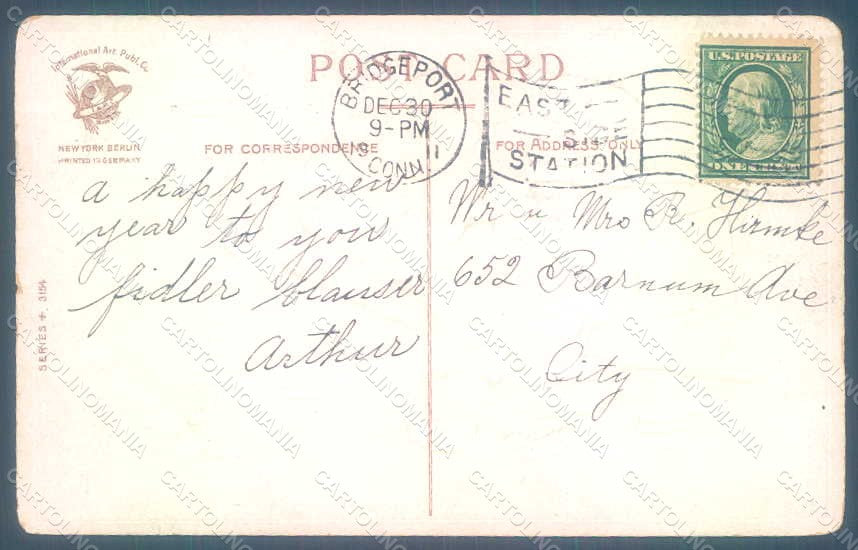 International Art. Publ. Co.
NEW YORK BERLIN
PRINTED IN GERMANY
POST CARD
BRIDGEPORT
DEC 30
9-PM
CONN.
EAST SIDE
STATION
U.S. POSTAGE
ONE CENT
FOR CORRESPONDENSE
FOR ADDRESS ONLY
a happy new
year to you
fidler blauser
Arthur
Mr u Mrs R. Hirmke
652 Barnum Ave
City
SERIES +, 3154
CARTOLINOMANIA